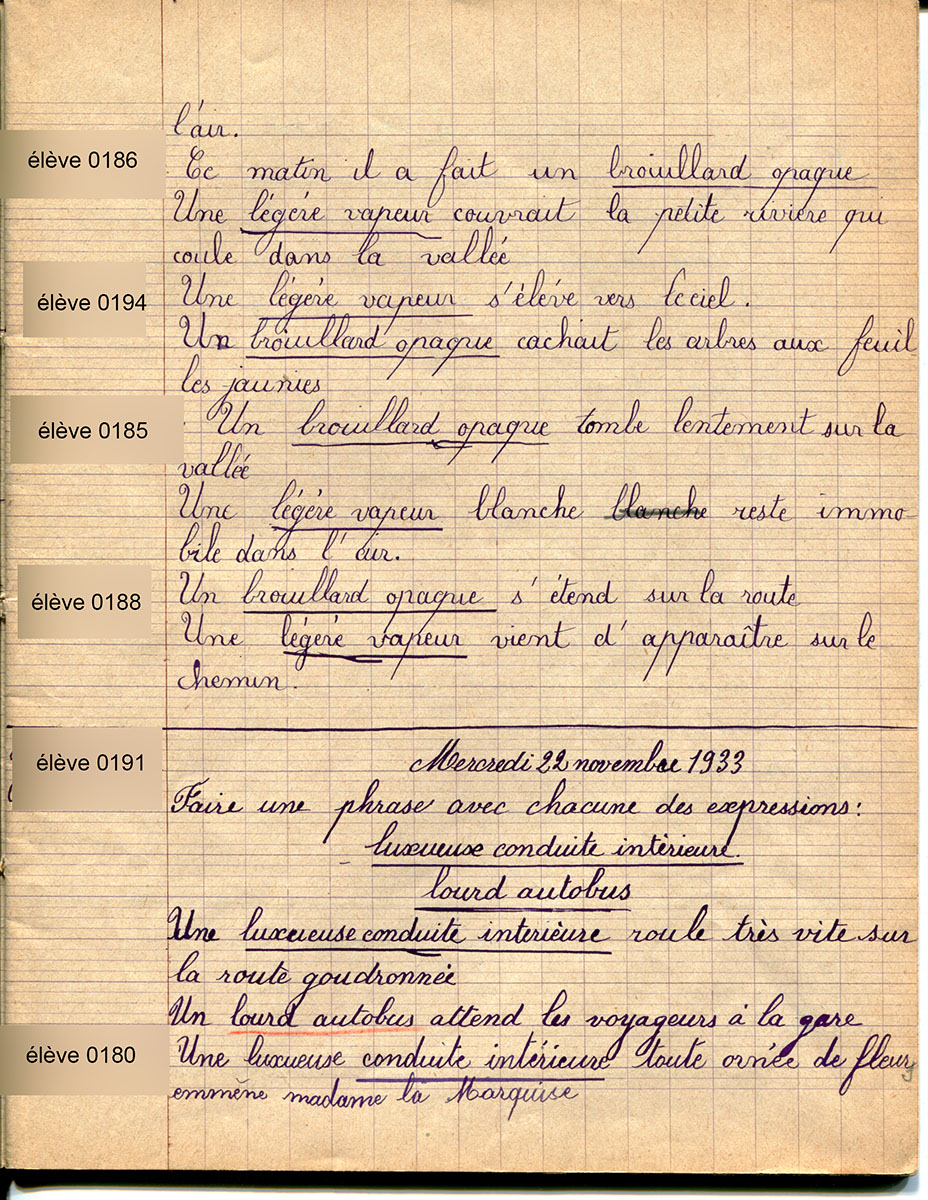 l'air.
élève 0186
Ce matin il a fait un brouillard opaque
Une légére vapeur couvrait la petite rivière qui
coule dans la vallée
élève 0194
Une légére vapeur s'éléve vers le ciel.
Un brouillard opaque cachait les arbres aux feuil
les jaunies
élève 0185
Un brouillard opaque tombe lentement sur la
vallée
Une légére vapeur blanche blanche reste immo
bile dans l'air.
élève 0188
Un brouillard opaque s'étend sur la route
Une légére vapeur vient d'apparaître sur le
chemin.
élève 0191
Mercredi 22 novembre 1933
Faire une phrase avec chacune des expressions:
luxueuse conduite intérieure.
lourd autobus
Une luxueuse conduite interieure roule très vite sur
la route goudronnée
Un lourd autobus attend les voyageurs à la gare
élève 0180
Une luxueuse conduite intérieure toute ornée de fleurs
emmène madame la Marquise